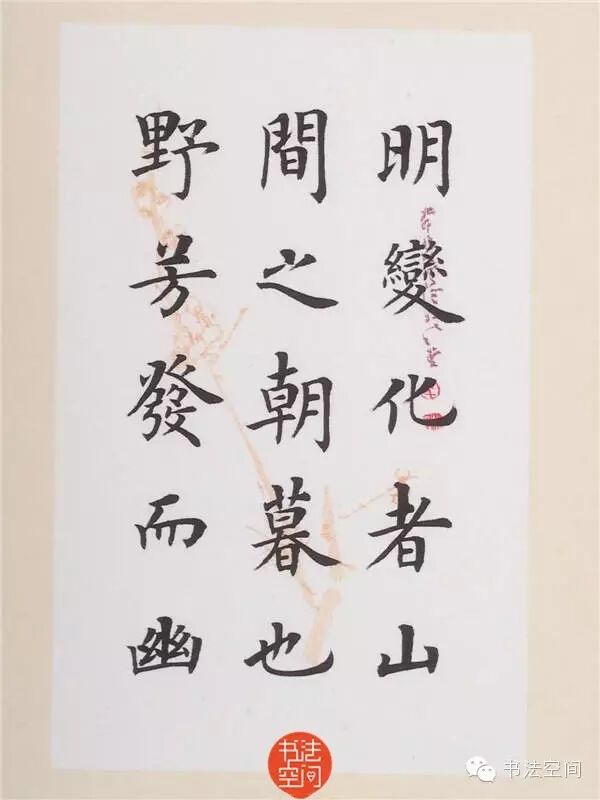 明變化者山
間之朝暮也
野芳發而幽
书法空间
书法空间